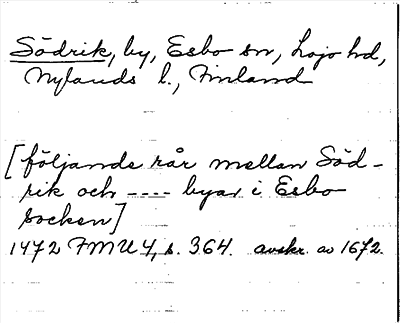 Södrik, by, Esbo sn, Lojo hd,
Nylands l., Finland
[följande rår mellan Söd-
rik och ---- byar i Esbo
socken]
1472 FMU 4, s. 364. avskr. av 1672.